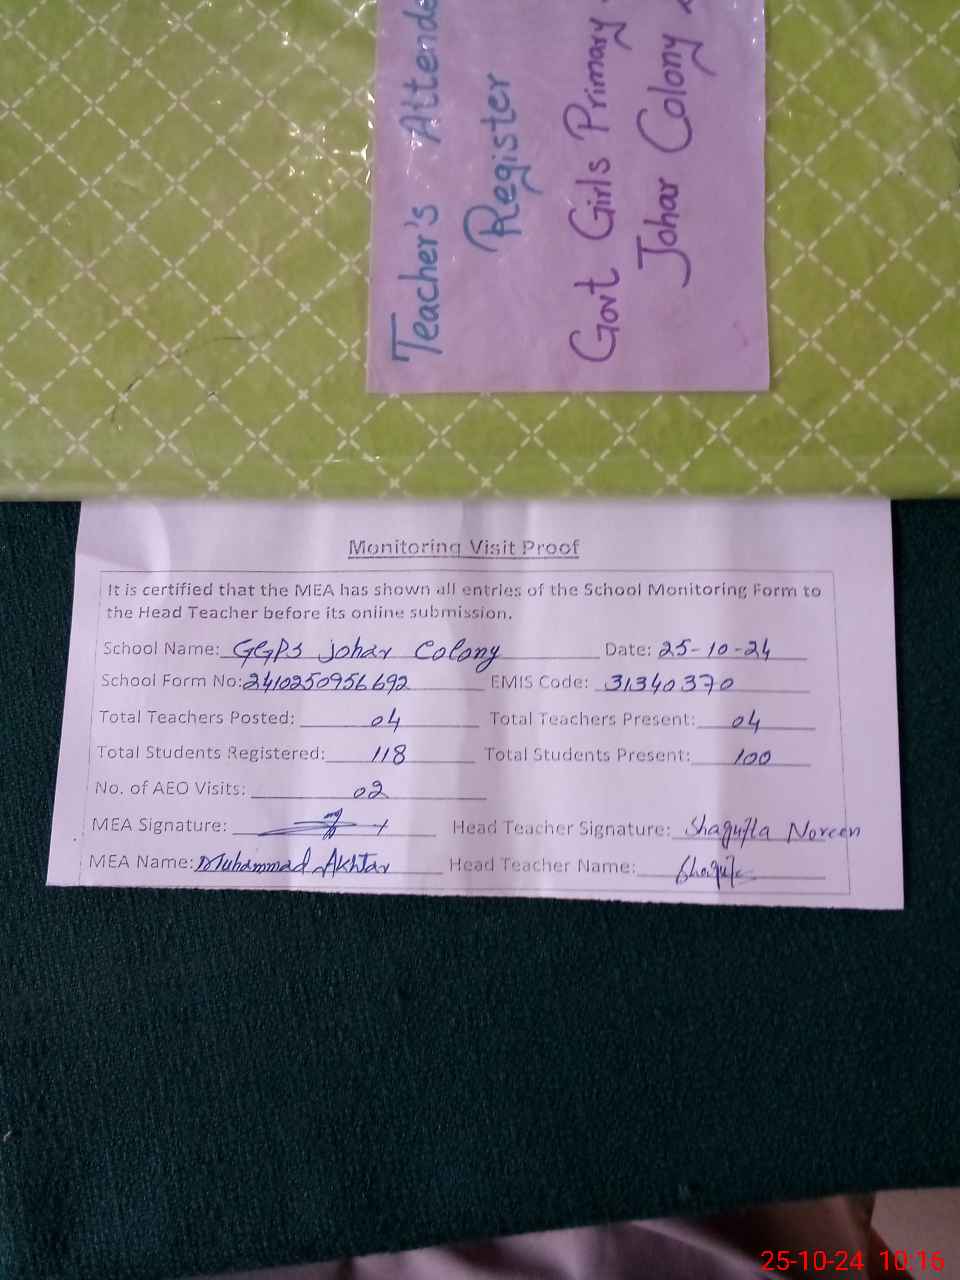 Teacher's Attend
Register
Govt Girls Primary
Johar Colony
Monitoring Visit Proof
It is certified that the MEA has shown all entries of the School Monitoring Form to
the Head Teacher before its online submission.
School Name: GGPS johar Colony Date: 25-10-24
School Form No: 2410250956692 EMIS Code: 31340370
Total Teachers Posted: 04 Total Teachers Present: 04
Total Students Registered: 118 Total Students Present: 100
No. of AEO Visits: 02
MEA Signature: Head Teacher Signature: Shagufta Noreen
MEA Name: Muhammad Akhtar Head Teacher Name:
25-10-24 10:16